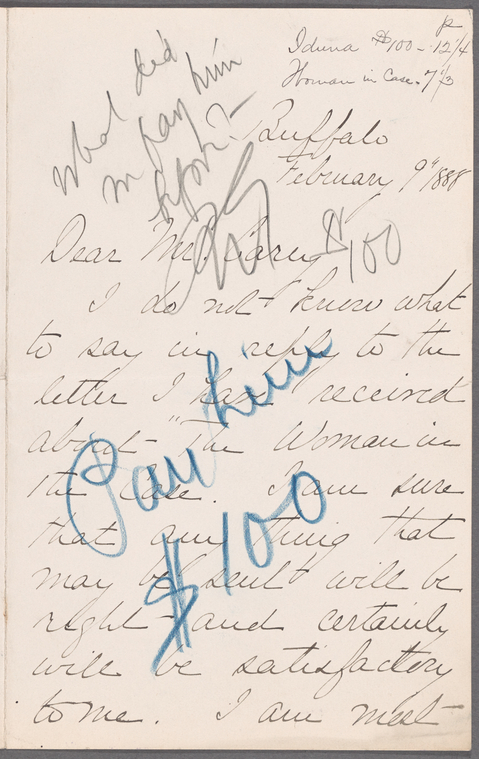 p
Iduna $100 - 12/4
Woman in Case. 7/3
What did
we pay him
before?
Buffalo
February 9" 1888
$100
Dear Mr. Carey
I do not know what
to say in reply to the
letter I have received
about "The Woman in
the Case. I am sure
that any thing that
may be sent will be
right and certainly
will be satisfactory
to me. I am most
Pay him
$100